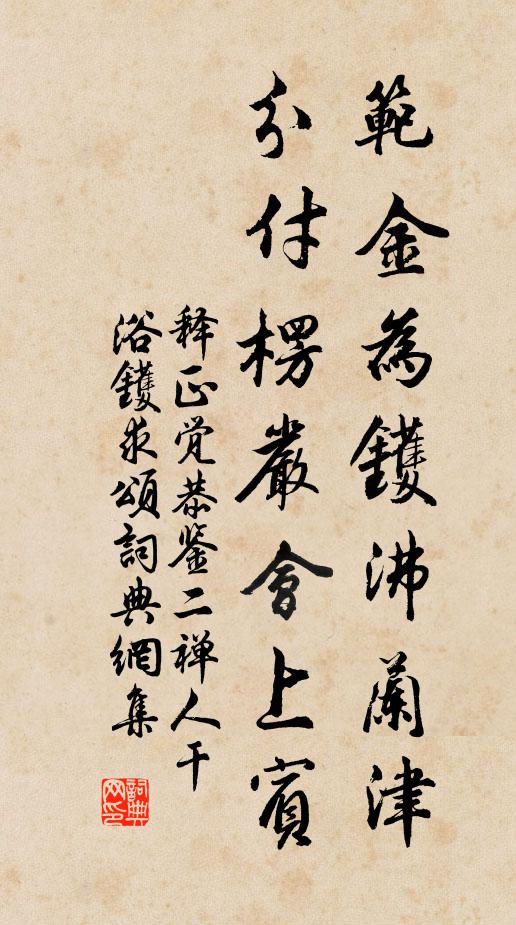 範金為鑊沸蘭津
分付楞嚴會上賓
释正觉恭鉴二禅人干
浴鑊求頌詞典網集
詞典
网印